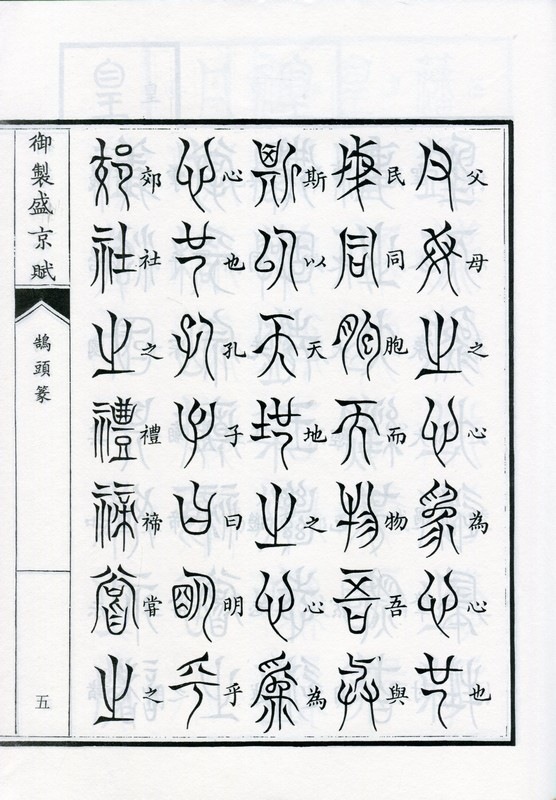 父母之心為心也
民同胞而物吾與
斯以天地之心為
心也孔子曰明乎
郊社之禮禘嘗之
御製盛京賦
鵠頭篆
五